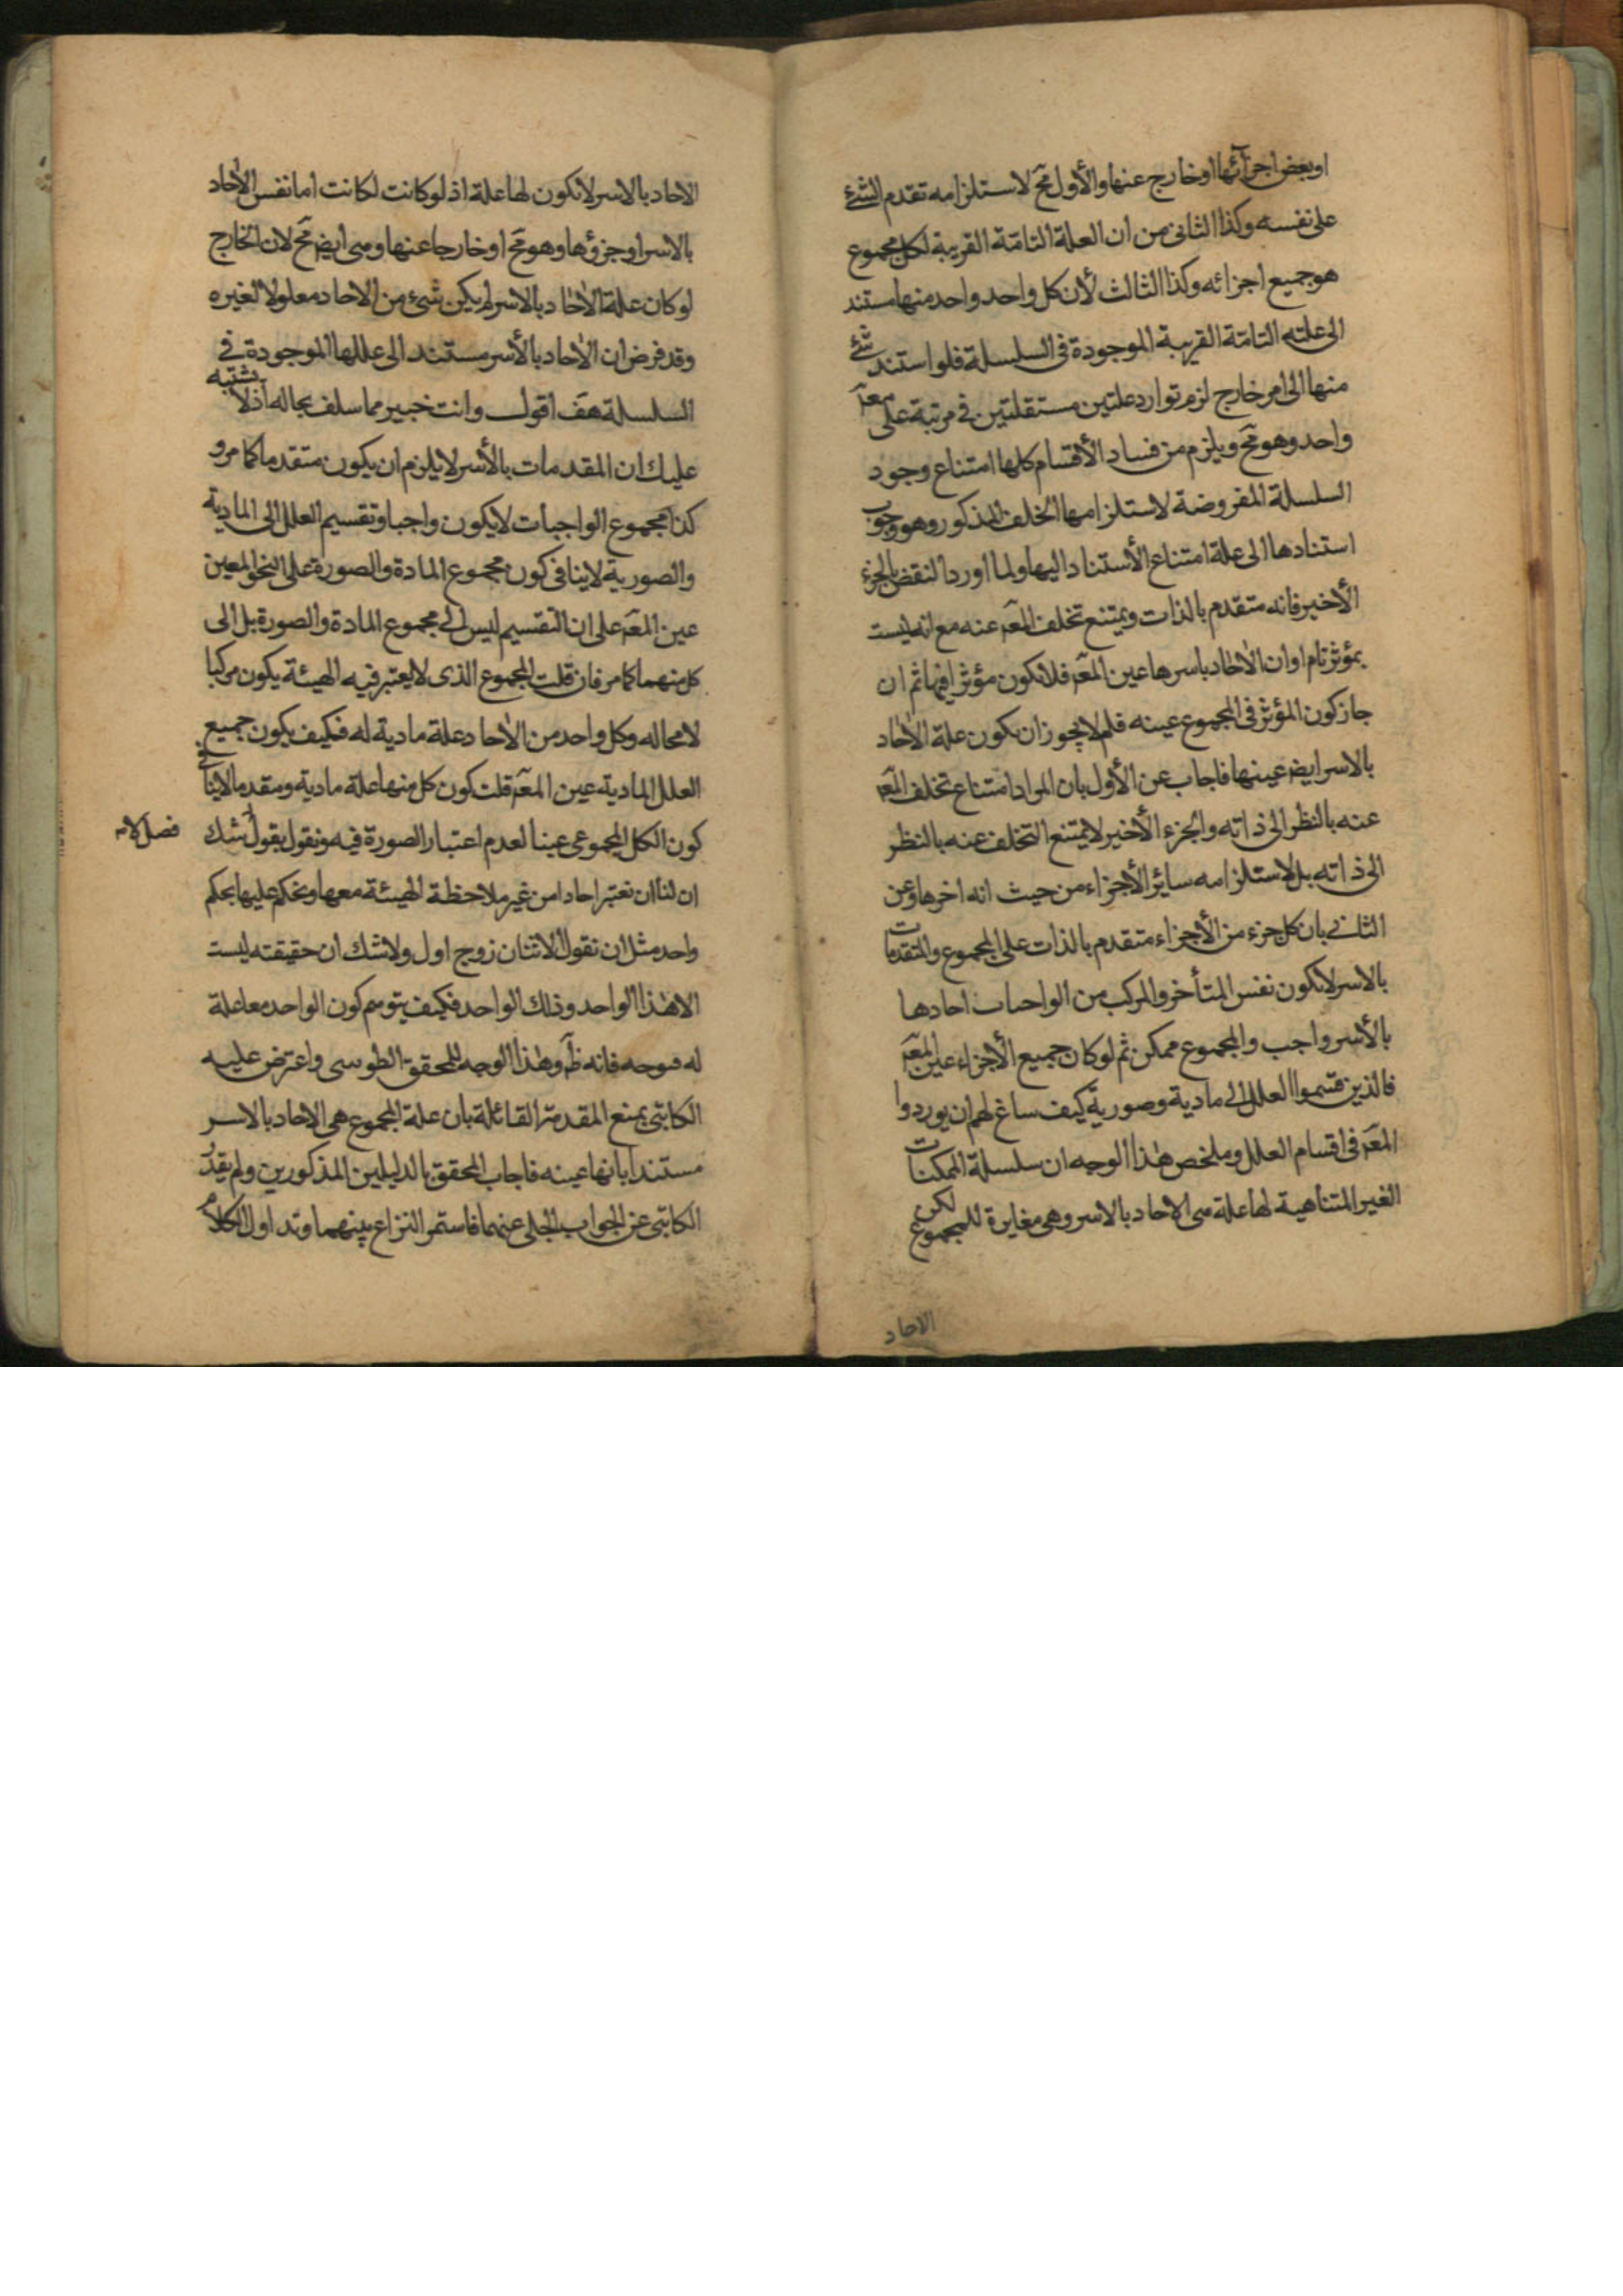 او بعض اجزائها او خارج عنها والأول مح لاستلزامه تقدم الشئ
على نفسه وكذا الثانى من ان العلة التامة القريبة لكل مجموع
هو جميع اجزائه وكذا الثالث لأن كل واحد واحد منها مستند
الى علته التامة القريبة الموجودة فى السلسلة فلو استند شئ
منها الى امر خارج لزم توارد علتين مستقلتين فى مرتبة على معه
واحد وهو مح ويلزم من فساد الأقسام كلها امتناع وجود
السلسلة المفروضة لاستلزامها الخلف المذكور وهو وجوب
استنادها الى علة امتناع الأستناد اليها ولما اورد النقض بالجزء
الأخير فانه متقدم بالذات ويمتنع تخلف المعه عنه مع انه ليست
بمؤثر تام او ان الاحاد باسرها عين المعه فلا تكون مؤثرا فيها ثم ان
جاز كون المؤثر فى المجموع عينه فلم لا يجوز ان تكون علة الاحاد
بالاسر ايضه عينها فاجاب عن الأول بان المراد امتناع تخلف المعه
عنه بالنظر الى ذاته والجزء الأخير لا يمتنع التخلف عنه بالنظر
الى ذاته بل لاستلزامه سائر الأجزاء من حيث انه اخرها وعن
الثانى بان كل جزء من الأجزاء متقدم بالذات على المجموع والمتقدمات
بالاسر لا تكون نفس المتأخر والمركب من الواحبات احادها
بالأسر واجب والمجموع ممكن ثم لو كان جميع الأجزاء عين المعه
فالذين قسموا العلل الى مادية وصورية كيف ساغ لهم ان يوردوا
المعه فى اقسام العلل وملخص هذا الوجه ان سلسلة الممكنات
الغير المتناهية لها علة هى الاحاد بالاسر وهى مغايرة للمجموع لكن
الاحاد
الاحاد بالاسر لا تكون لها علة اذ لو كانت لكانت اما نفس الاحاد
بالاسر او جزؤها وهو مح او خارجا عنها وهى ايضه مح لان الخارج
لو كان علة الاحاد بالاسر لم يكن شئ من الاحاد معلولا لغيره
وقد فرض ان الاحاد بالأسر مستند الى عللها الموجودة فى
السلسلة هف اقول وانت خبير مما سلف بحاله اذ لا يشتبه
عليك ان المقدمات بالأسر لا يلزم ان يكون متقدما كما مر و
كذا مجموع الواجبات لا يكون واجبا وتقسيم العلل الى المادية
والصورية لا ينافى كون مجموع المادة والصورة على النحو المعين
عين المعه على ان التقسيم ليس الى مجموع المادة والصورة بل الى
كل منهما كما مر فان قلت المجموع الذى لا يعتبر فيه الهيئة يكون مركبا
لا محاله وكل واحد من الأحاد علة مادية له فكيف يكون جميع
العلل المادية عين المعه قلت كون كل منها علة مادية ومقدما لا ينافى
كون الكل المجموعى عينا لعدم اعتبار الصورة فيه ونقول بقول لا شك
فصل لامه
ان لنا ان نعتبر احادا من غير ملاحظة الهيئة معها ونحكم عليها بحكم
واحد مثل ان نقول الاثنان زوج اول ولا شك ان حقيقته ليست
الا هذا الواحد وذلك الواحد فكيف يتوهم كون الواحد معا علة
له موجه فانه ظ وهذا الوجه للمحقق الطوسى واعترض عليه
الكاتبى بمنع المقدمة القائلة بان علة المجموع هى الاحاد بالاسر
مستندا بانها عينه فاجاب المحقق بالدليلين المذكورين ولم يقدر
الكاتبى عن الجواب الجلى عنهما فاستمر النزاع بينهما وتداول الكلام